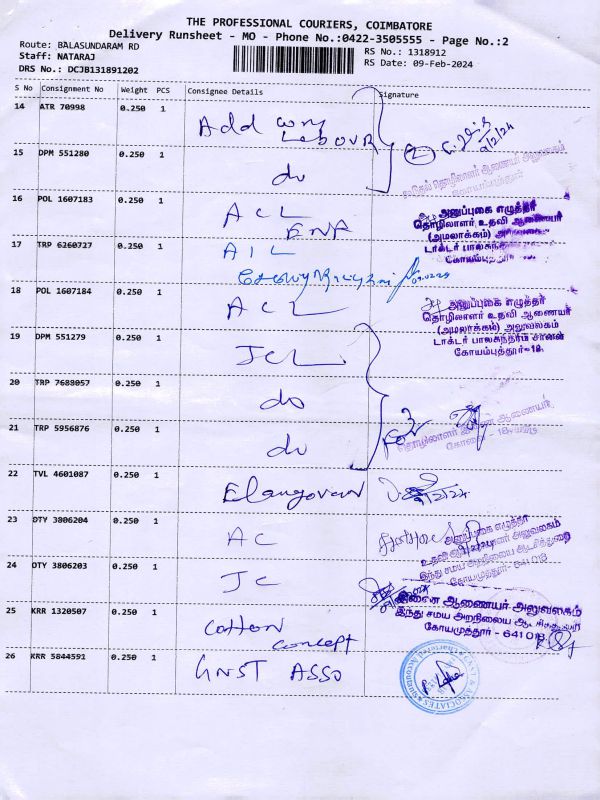 THE PROFESSIONAL COURIERS, COIMBATORE
Delivery Runsheet - MO - Phone No.:0422-3505555 - Page No.:2
Route: BALASUNDARAM RD
RS No.: 1318912
Staff: NATARAJ
RS Date: 09-Feb-2024
DRS No.: DCJB131891202
S No Consignment No Weight PCS Consignee Details Signature
14 ATR 70998 0.250 1 Add com Labour
15 DPM 551280 0.250 1 do
16 POL 1607183 0.250 1 ACL ENF
அனுப்புகை எழுத்தர்
தொழிலாளர் உதவி ஆணையர்
(அமலாக்கம்)
17 TRP 6260727 0.250 1 AIL
09.02.24
18 POL 1607184 0.250 1 ACL
அனுப்புகை எழுத்தர்
தொழிலாளர் உதவி ஆணையர்
(அமலாக்கம்) அலுவலகம்
டாக்டர் பாலசுந்தரம் சாலை
கோயம்புத்தூர்-18.
19 DPM 551279 0.250 1 JCL
20 TRP 7688057 0.250 1 do
21 TRP 5956876 0.250 1 do
22 TVL 4601087 0.250 1 Elangovan
23 DTY 3806204 0.250 1 AC
அனுப்புகை எழுத்தர்
இந்து சமய அறநிலைய ஆட்சித்துறை
கோயமுத்தூர் - 641 018
24 DTY 3806203 0.250 1 JC
இணை ஆணையர் அலுவலகம்
இந்து சமய அறநிலைய
கோயமுத்தூர் - 641 018.
25 KRR 1320507 0.250 1 cotton concept
26 KRR 5844591 0.250 1 GNST ASSO